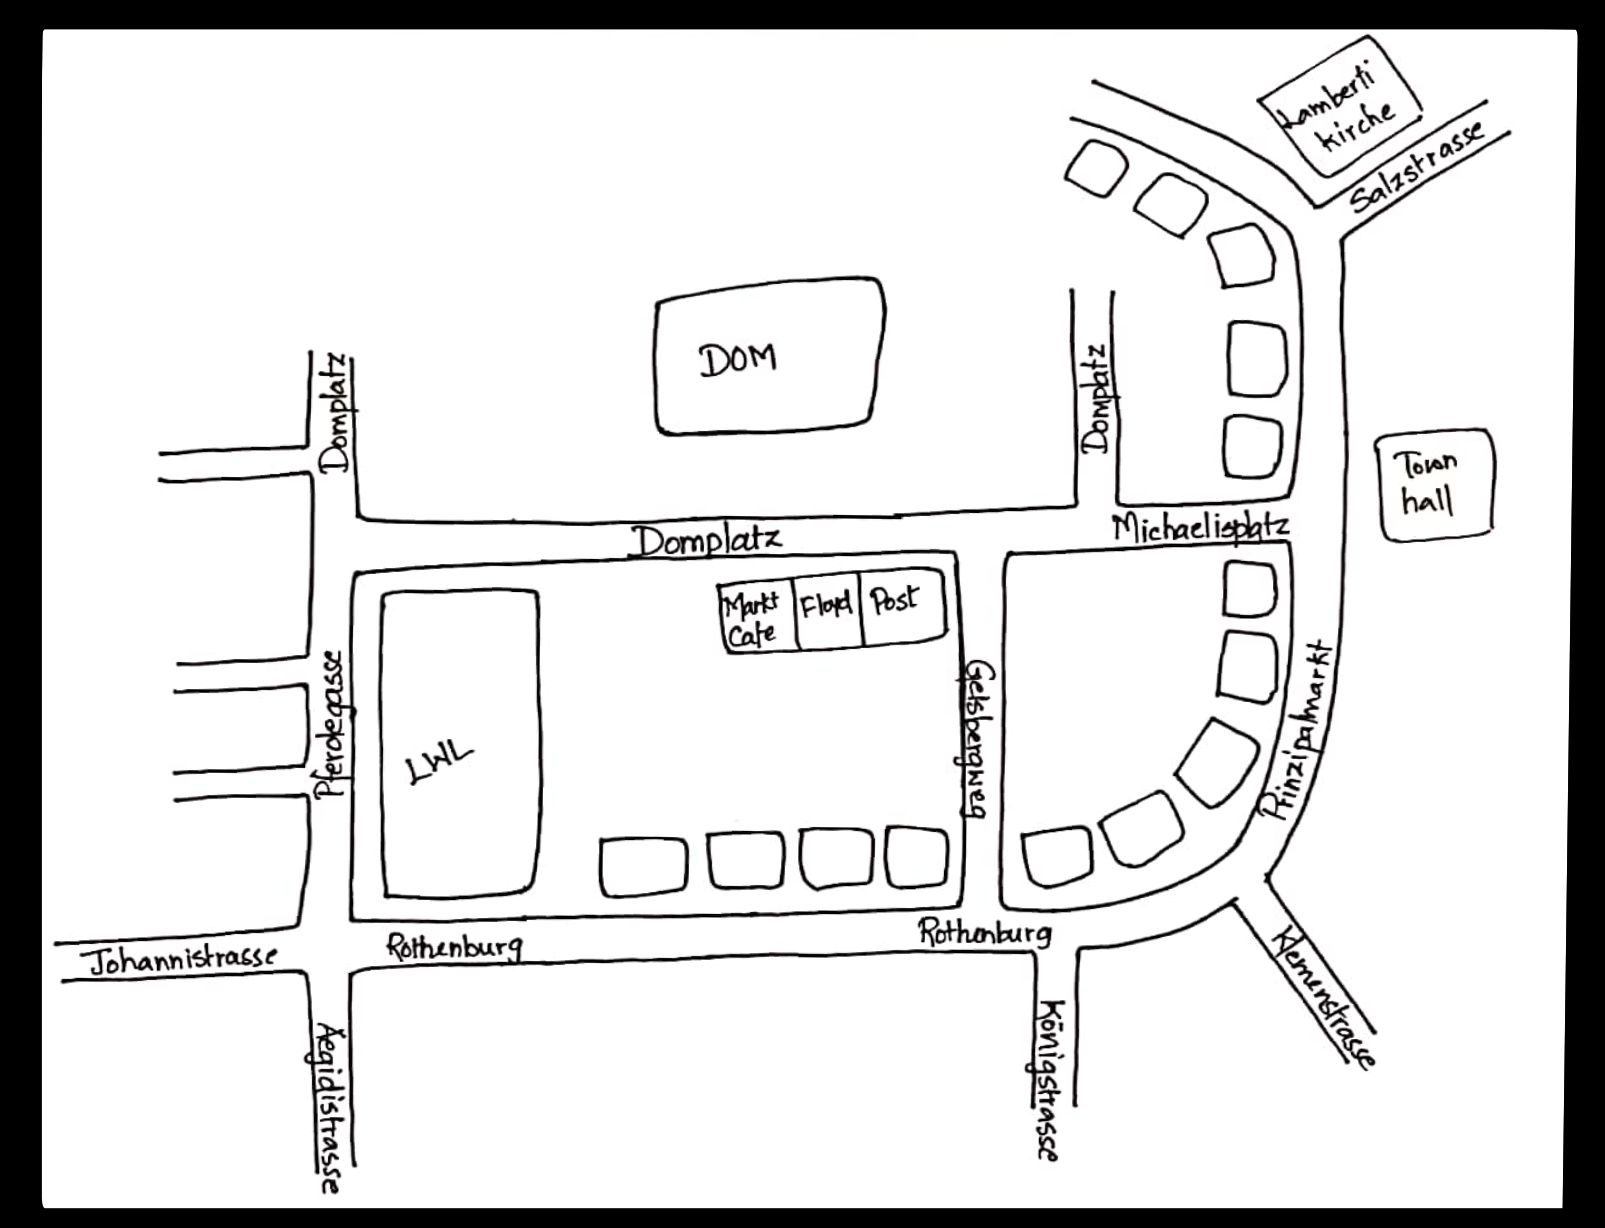 Lamberti
kirche
Salzstrasse
DOM
Domplatz
Domplatz
Town
hall
Michaelisplatz
Domplatz
Markt
Cafe
Floyd
Post
Pferdegasse
Geisbergweg
Prinzipalmarkt
LWL
Johannistrasse
Rothenburg
Rothenburg
Klemenstrasse
Aegidistrasse
Königstrasse